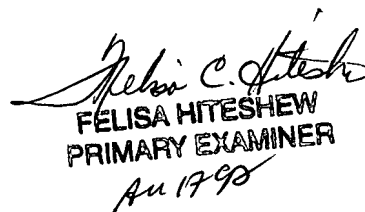 Felisa C. Hitesh
FELISA HITESHEW
PRIMARY EXAMINER
AU 1792